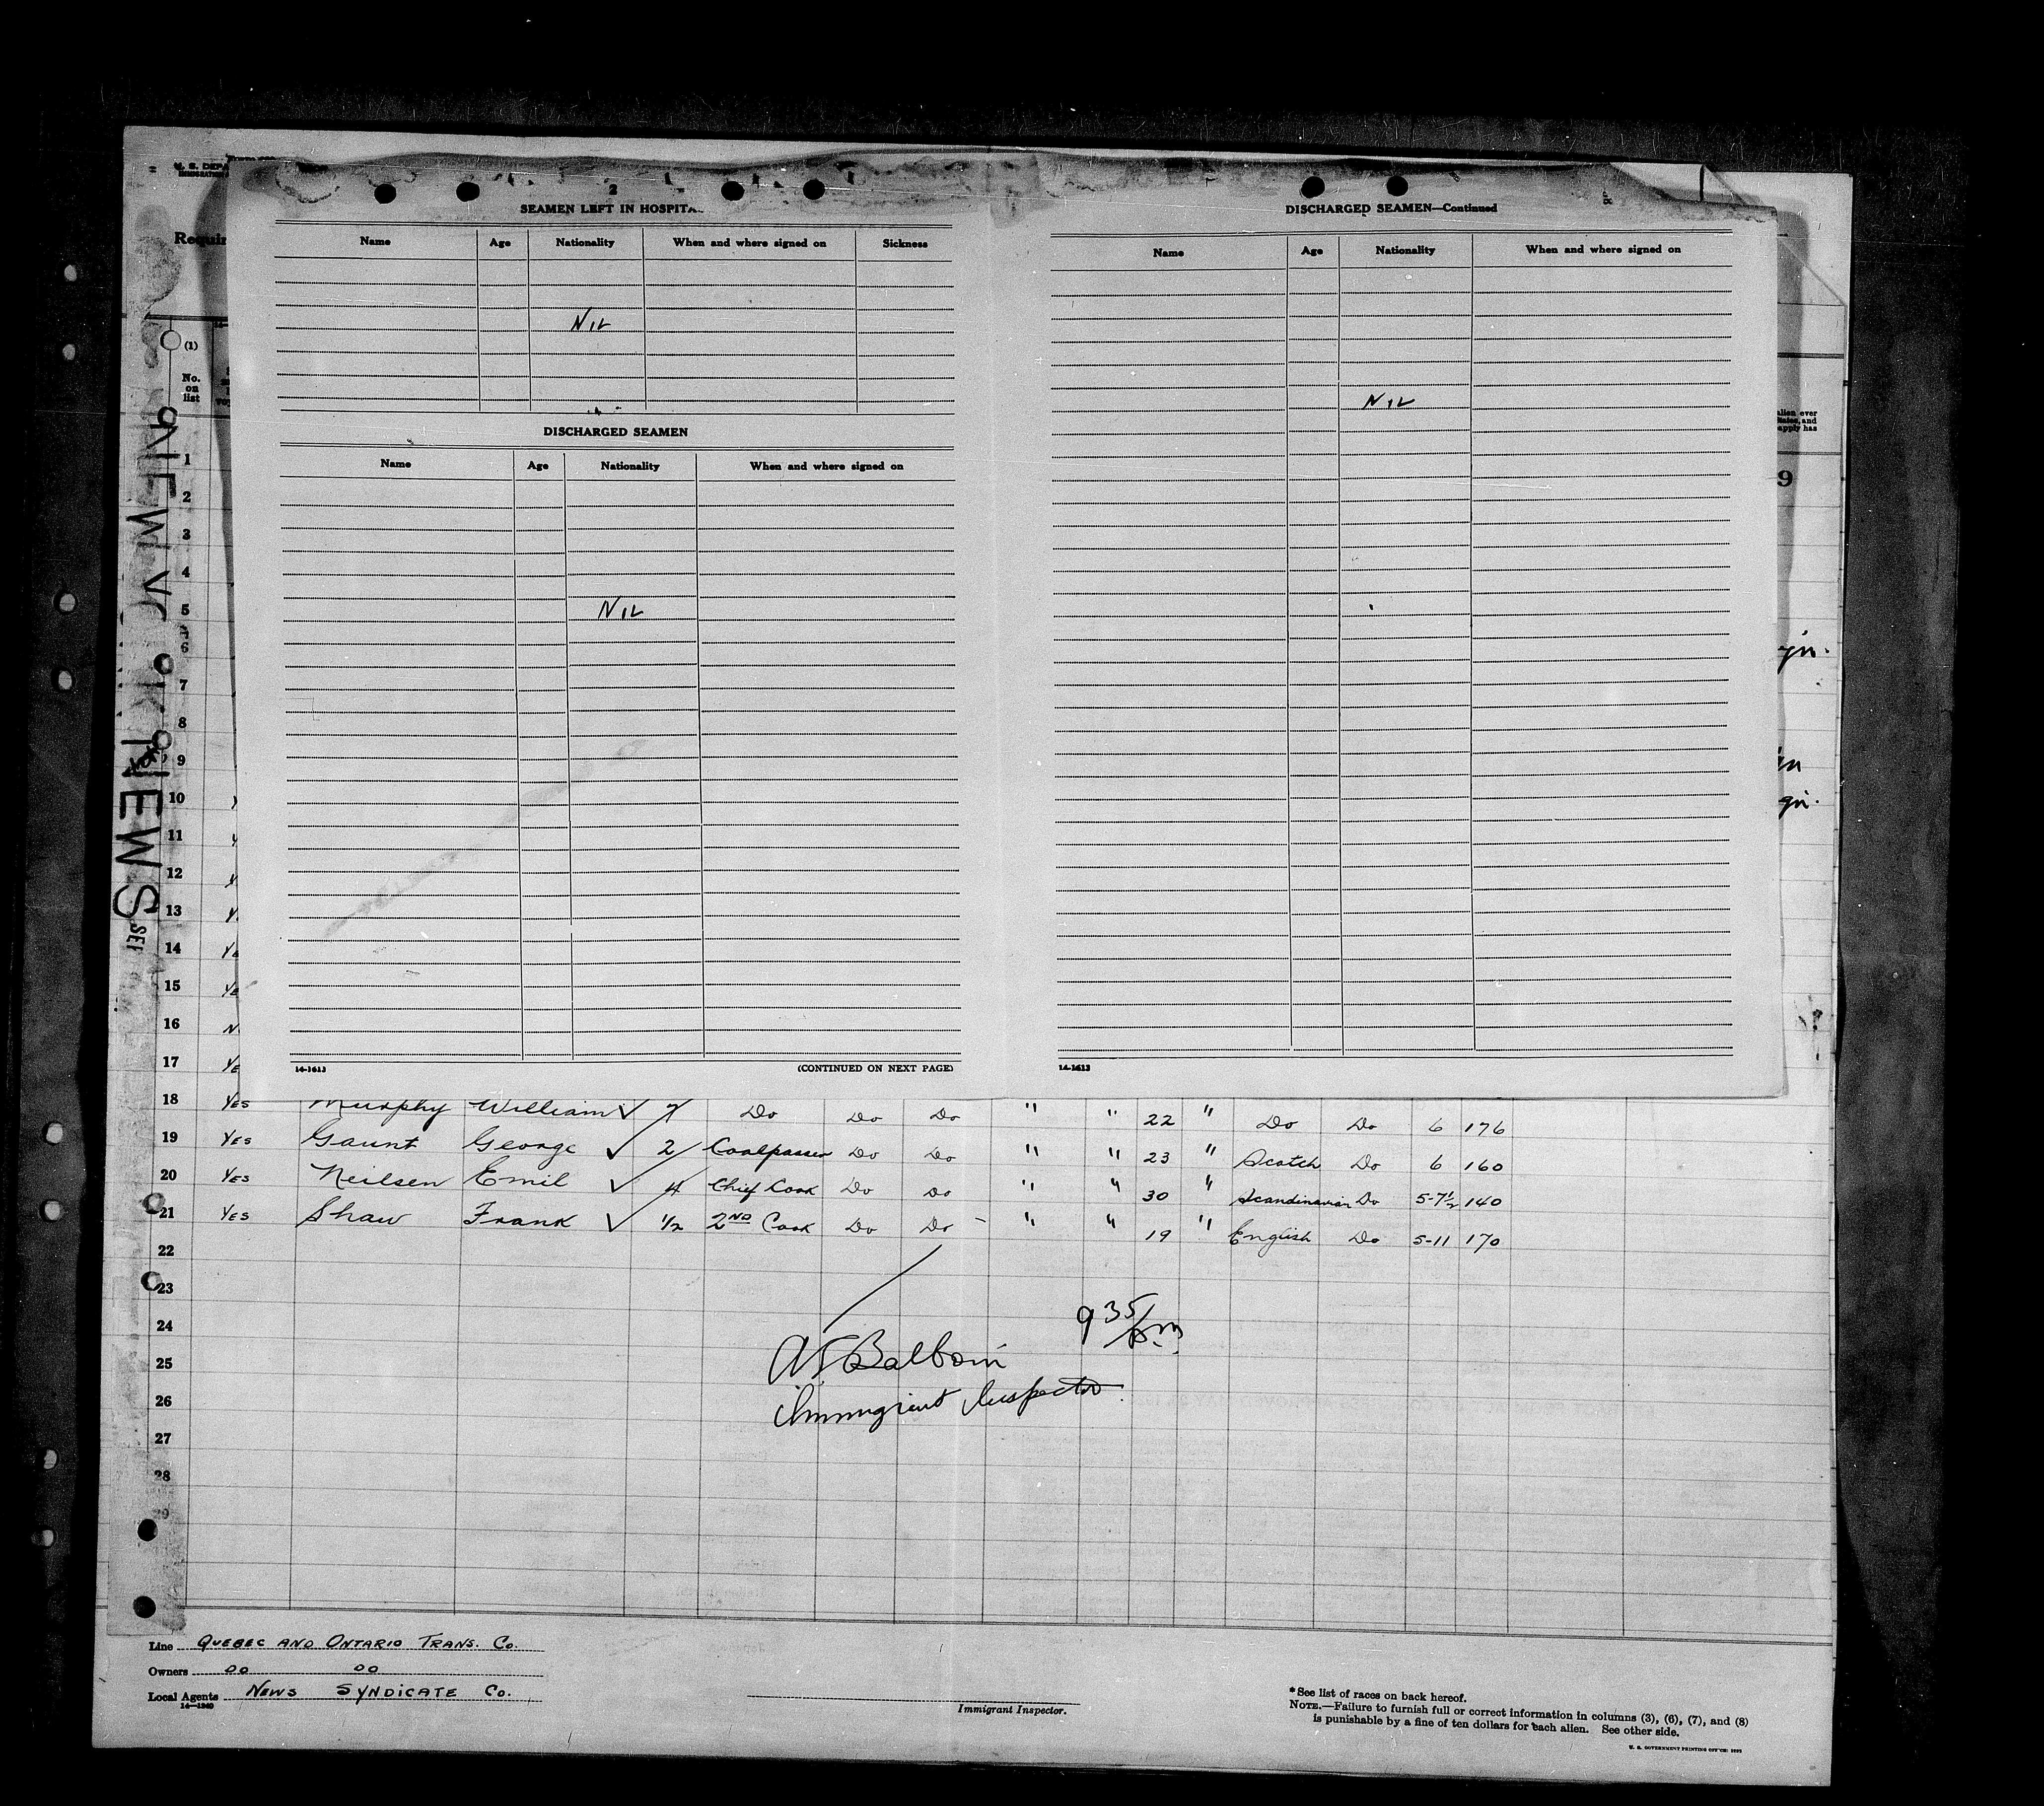 U. S. DEPA
Requir
(1)
No.
on
list
2
SEAMEN LEFT IN HOSPITA
Name Age Nationality When and where signed on Sickness
NIL
DISCHARGED SEAMEN
Name Age Nationality When and where signed on
NIL
14-1613 (CONTINUED ON NEXT PAGE)
DISCHARGED SEAMEN—Continued
Name Age Nationality When and where signed on
NIL
14-1613
alien ever
States, and
apply has
9
NEWS
1
2
3
4
5
6
7
8
9
10
11
12
13
14 YE
15 YE
16 N
17 YE
18 YES Murphy William ✓ Do Do Do " " 22 " Do Do 6 176
19 YES Gaunt George ✓ 2 Coalpasser Do Do " " 23 " Scotch Do 6 160
20 YES Neilsen Emil ✓ 4 Chief Cook Do Do " " 30 " Scandinavian Do 5-7½ 140
21 YES Shaw Frank ✓ ½ 2ND Cook Do Do " " 19 " English Do 5-11 170
22
23
24
25
26
27
28
29
9 35/pm
Immigrant Inspector
Line QUEBEC AND ONTARIO TRANS. CO.
Owners DO DO
Local Agents NEWS SYNDICATE CO.
14—1240
Immigrant Inspector.
*See list of races on back hereof.
NOTE.—Failure to furnish full or correct information in columns (3), (6), (7), and (8)
is punishable by a fine of ten dollars for each alien. See other side.